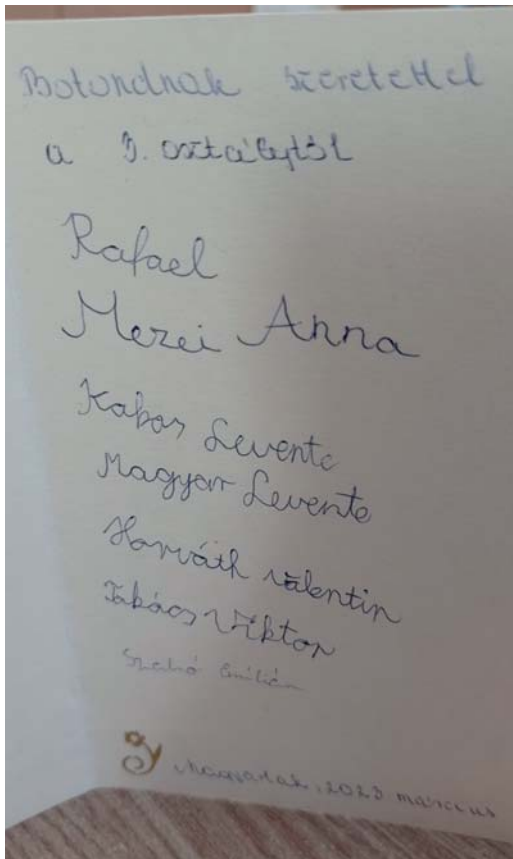 Botondnak szeretettel
a 3. osztálytól
Rafael
Mezei Anna
Kabos Levente
Magyar Levente
Horváth Valentin
Takács Viktor
Szabó
2023 március